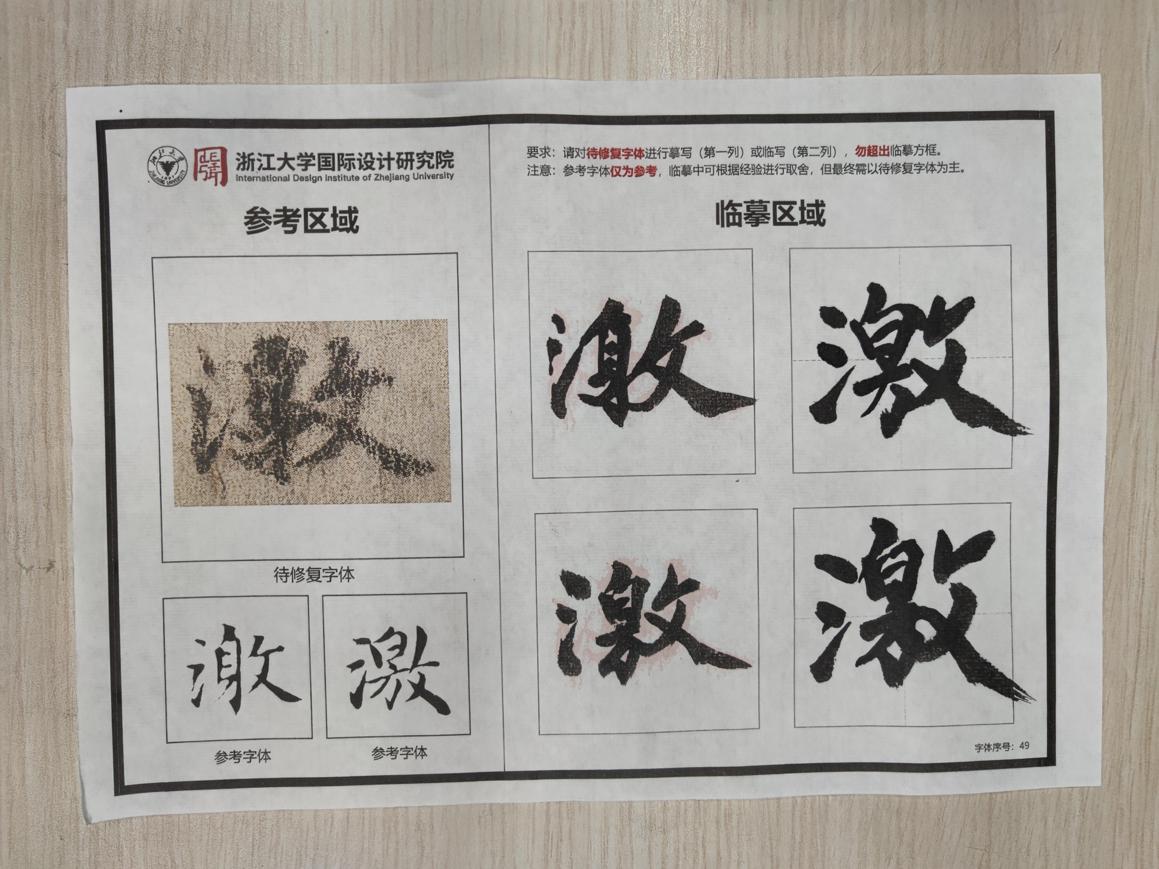 浙江大学国际设计研究院
International Design Institute of Zhejiang University
参考区域
激
待修复字体
激
参考字体
激
参考字体
要求：请对待修复字体进行摹写（第一列）或临写（第二列），勿超出临摹方框。
注意：参考字体仅为参考，临摹中可根据经验进行取舍，但最终需以待修复字体为主。
临摹区域
激 激
激 激
字体序号：49